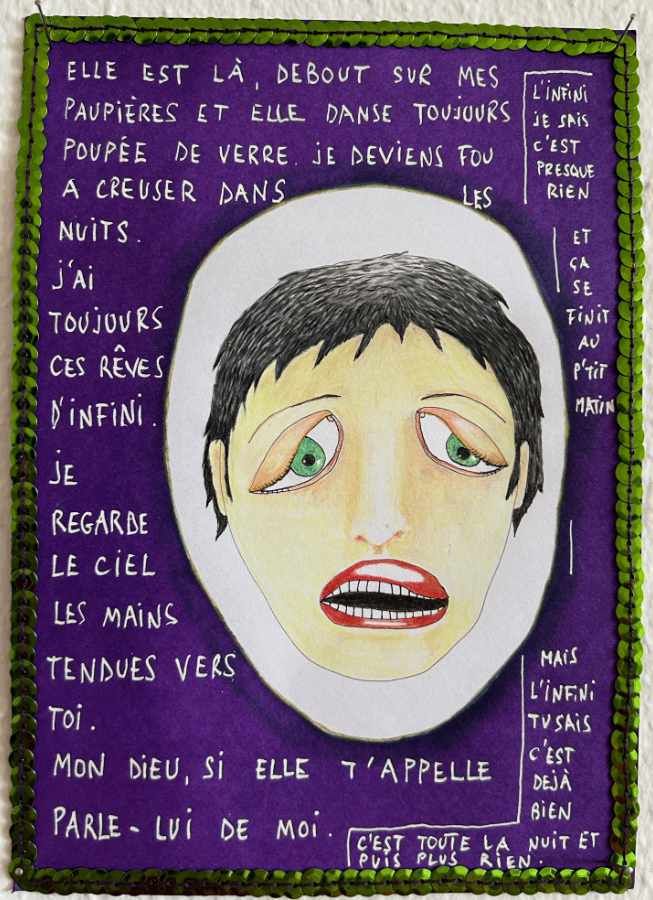 ELLE EST LÀ, DEBOUT SUR MES
PAUPIÈRES ET ELLE DANSE TOUJOURS
POUPÉE DE VERRE. JE DEVIENS FOU
A CREUSER DANS LES
NUITS.
J'AI
TOUJOURS
CES RÊVES
D'INFINI.
JE
REGARDE
LE CIEL
LES MAINS
TENDUES VERS
TOI.
MON DIEU, SI ELLE T'APPELLE
PARLE-LUI DE MOI.
L'INFINI
JE SAIS
C'EST
PRESQUE
RIEN
ET
ÇA
SE
FINIT
AU
P'TIT
MATIN
MAIS
L'INFINI
TU SAIS
C'EST
DEJÀ
BIEN
C'EST TOUTE LA NUIT ET
PUIS PLUS RIEN.